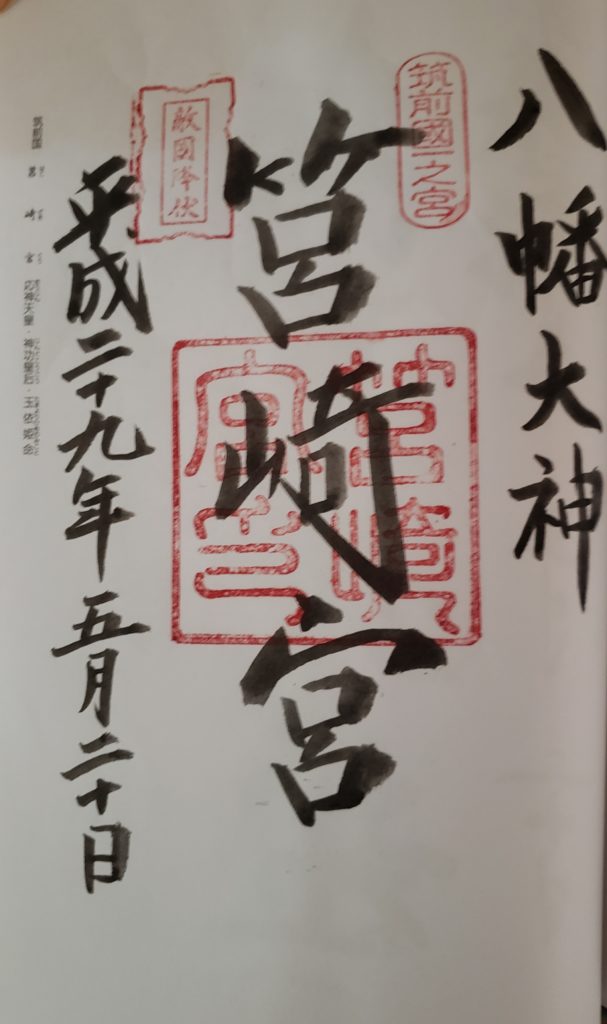 八幡大神
筑前國一之宮
筥崎宮
敵國降伏
平成二十九年五月二十日
筑前国 筥崎宮 応神天皇・神功皇后・玉依姫命